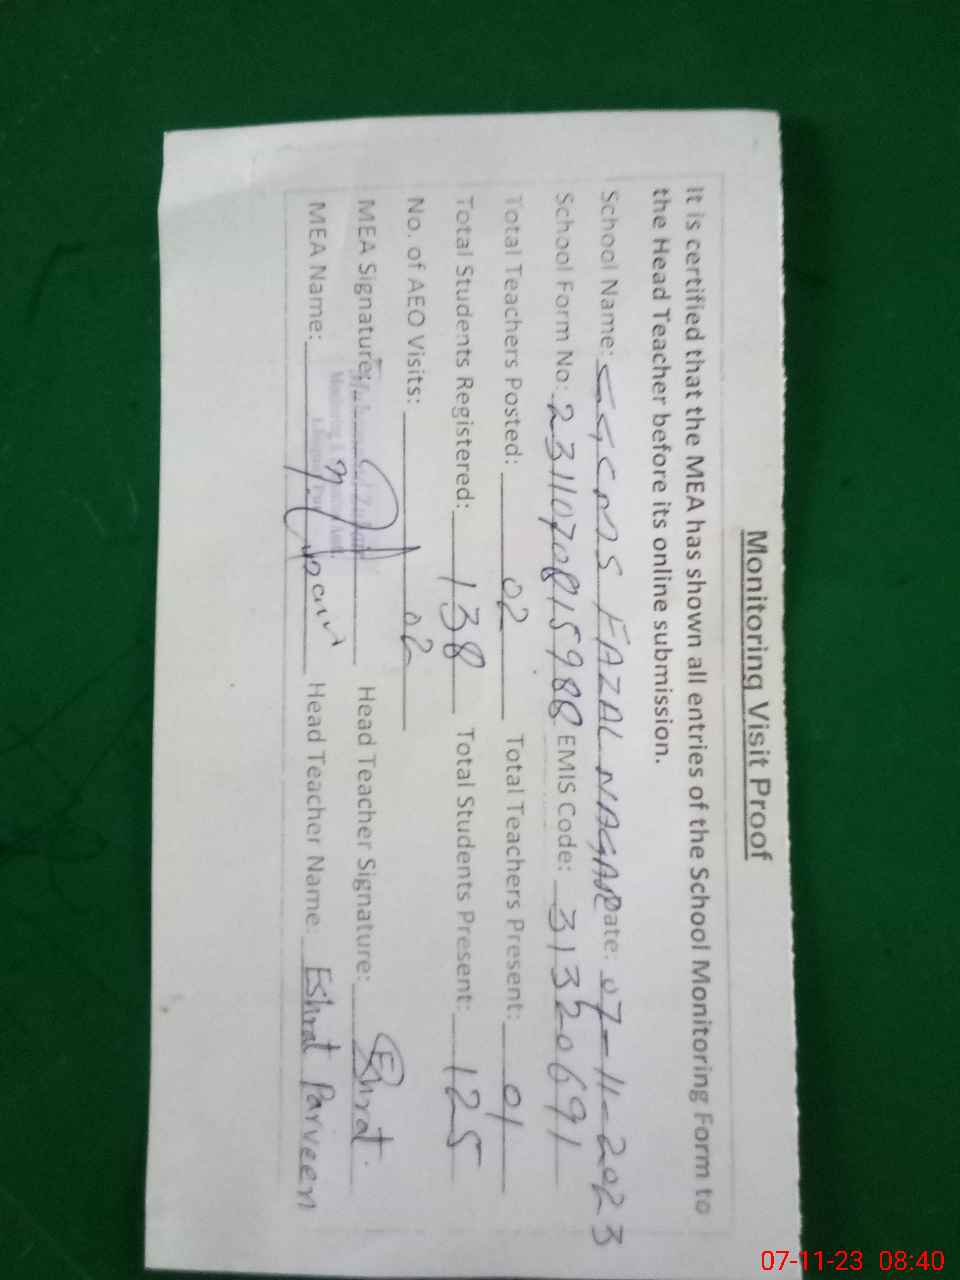 Monitoring Visit Proof
It is certified that the MEA has shown all entries of the School Monitoring Form to
the Head Teacher before its online submission.
School Name: GGCMS FAZAL NAGAR Date: 07-11-2023
School Form No: 2311070815988 EMIS Code: 31320691
Total Teachers Posted: 02 Total Teachers Present: 01
Total Students Registered: 138 Total Students Present: 125
No. of AEO Visits: 02
MEA Signature: Head Teacher Signature: Eshrat
MEA Name: Head Teacher Name: Eshrat Parveen
07-11-23 08:40